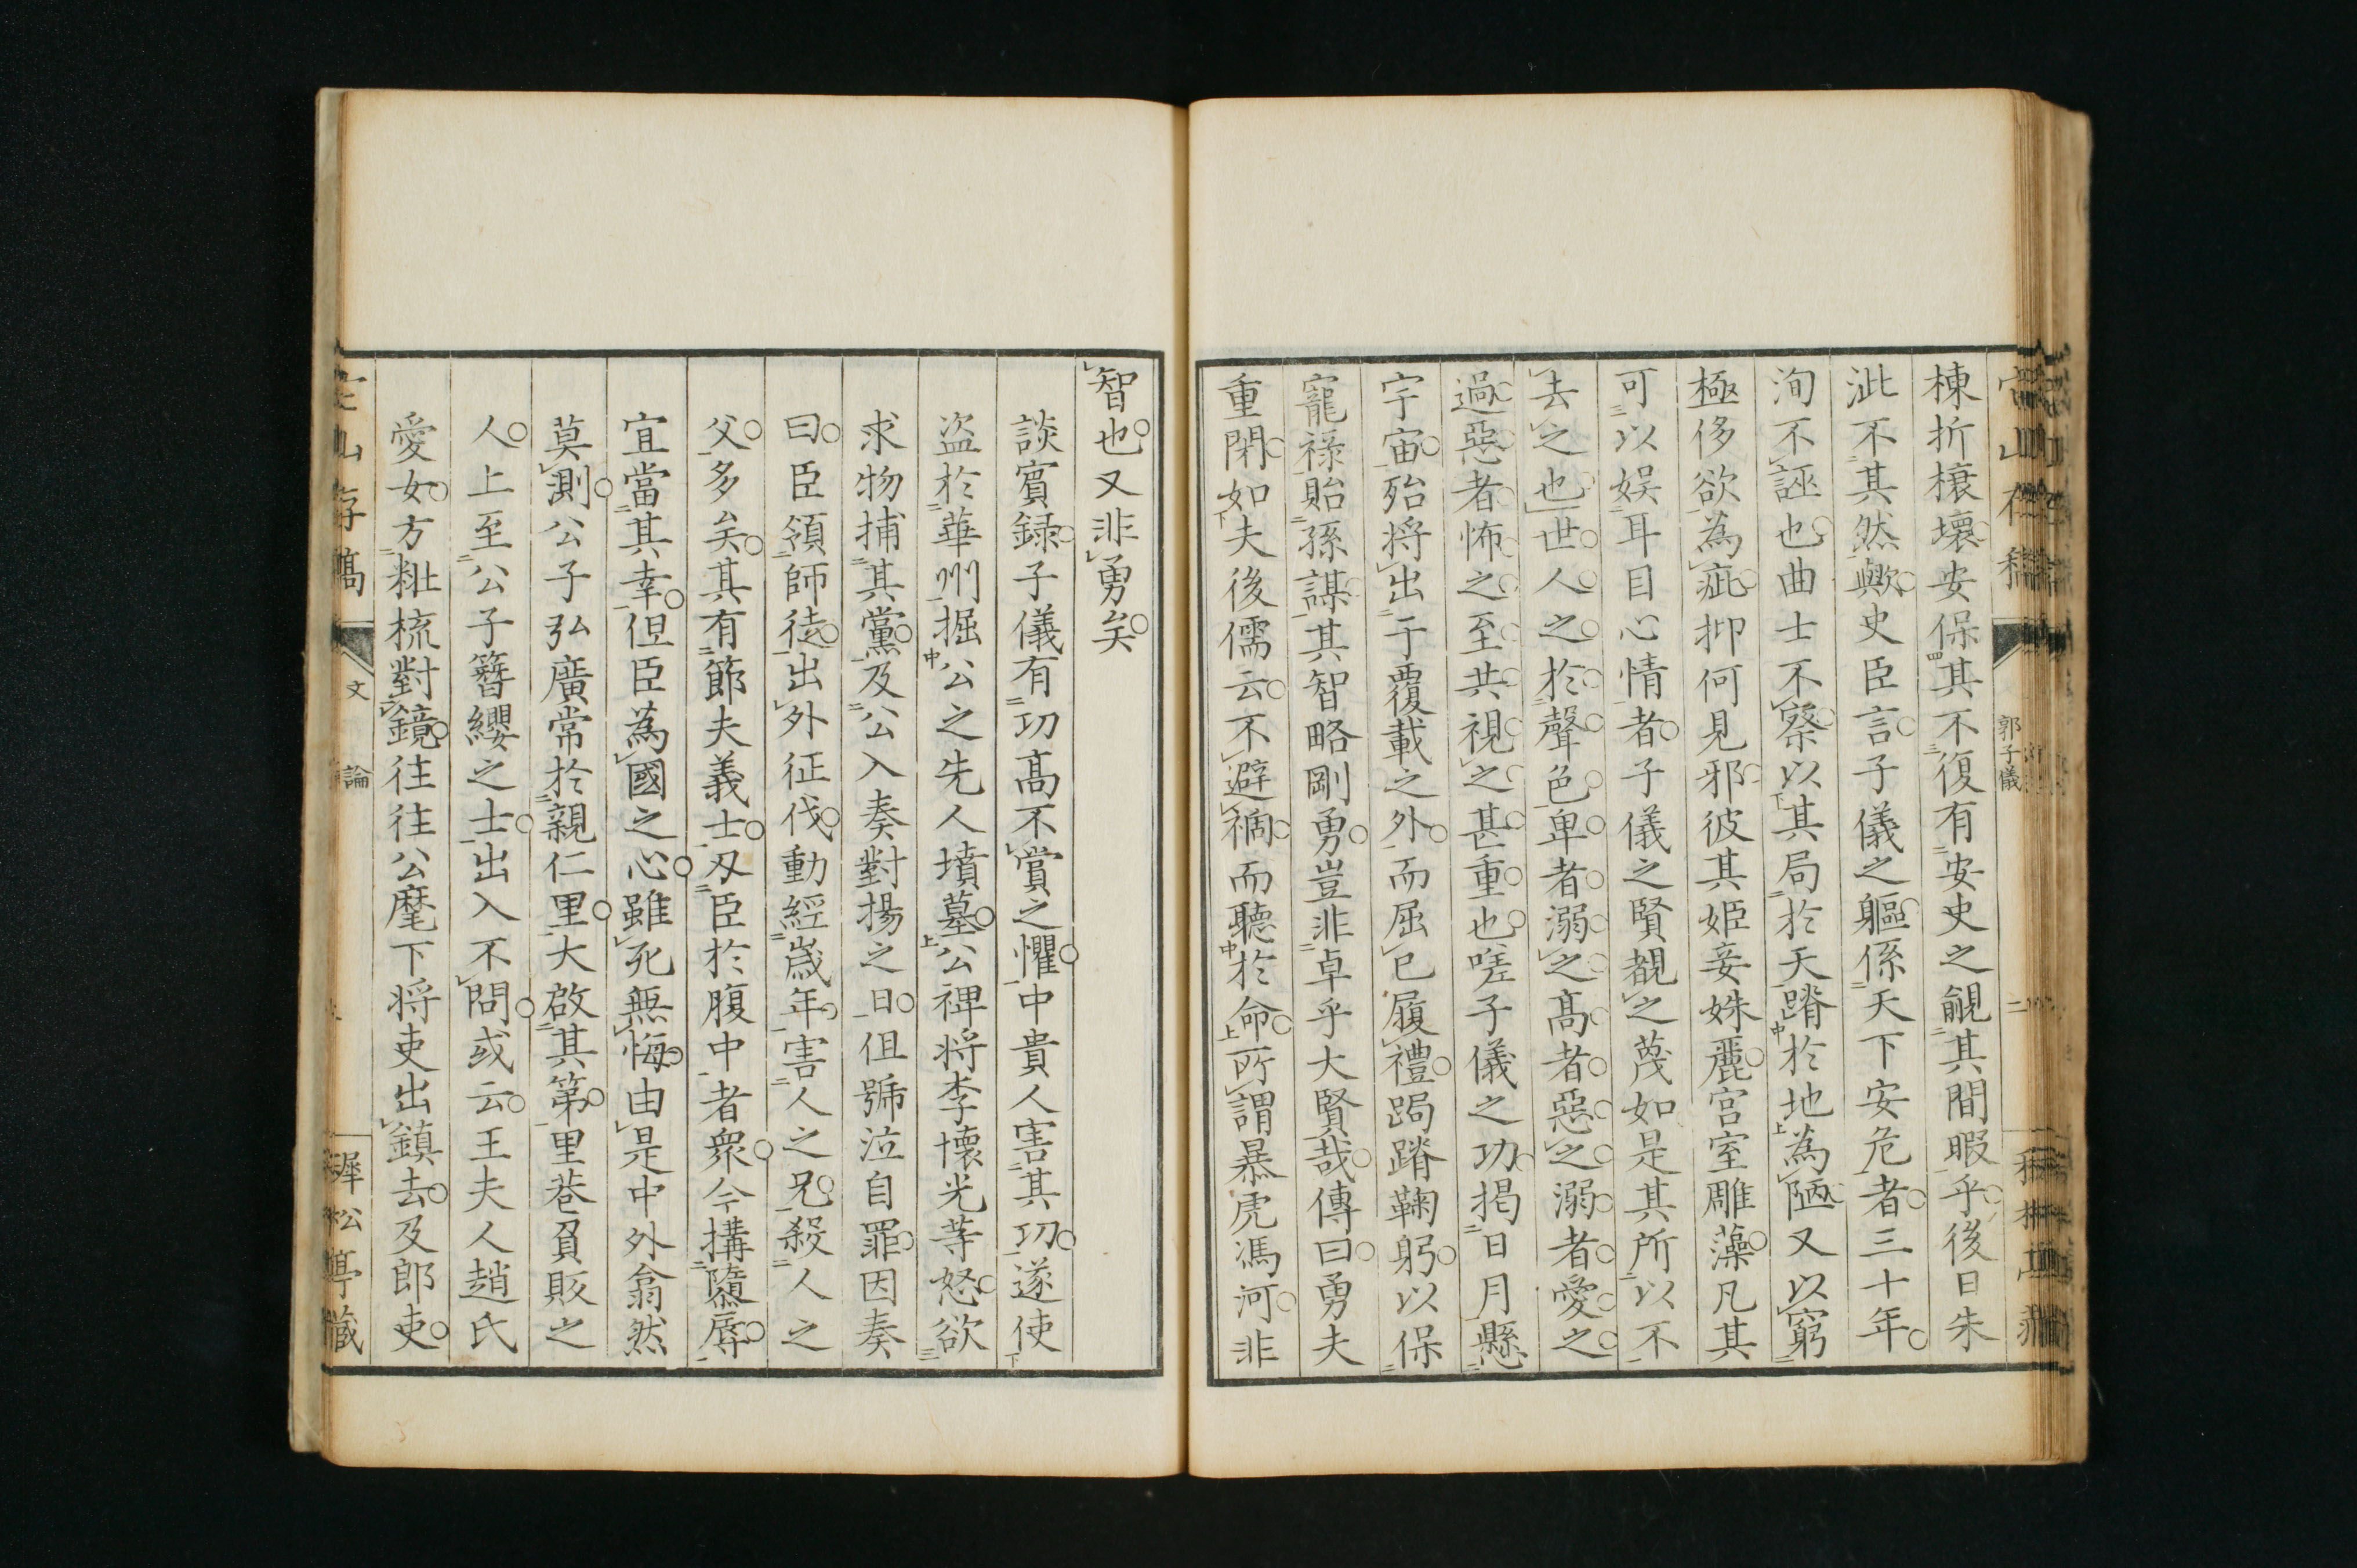 郭子儀
棟折榱壞安保其不復有安史之覦其間暇乎後日朱
泚不其然歟史臣言子儀之軀係天下安危者三十年
洵不誣也曲士不察以其局於天蹐於地為陋又以窮
極侈欲為疵抑何見邪彼其姬妾姝麗宮室雕藻凡其
可以娛耳目心情者子儀之賢覩之蔑如是其所以不
去之也世人之於聲色卑者溺之高者惡之溺者愛之
過惡者怖之至共視之甚重也嗟子儀之功揭日月懸
宇宙殆将出于覆載之外而屈已履禮跼蹐鞠躬以保
寵祿貽孫謀其智略剛勇豈非卓乎大賢哉傳曰勇夫
重閉如夫後儒云不避禍而聽於命所謂暴虎馮河非
智也又非勇矣
談賓録子儀有功高不賞之懼中貴人害其功遂使
盗於華州掘公之先人墳墓公禆将李懷光等怒欲
求物捕其黨及公入奏對揚之日但號泣自罪因奏
曰臣領師徒出外征伐動經歲年害人之兄殺人之
父多矣其有節夫義士刃臣於腹中者衆今搆隳辱
宜當其幸但臣為國之心雖死無悔由是中外翕然
莫測公子弘廣常於親仁里大啟其第里巷負販之
人上至公子簪纓之士出入不問或云王夫人趙氏
愛女方粧梳對鏡往往公麾下将吏出鎮去及郎吏
定山存稿
文
論
犀松亭藏